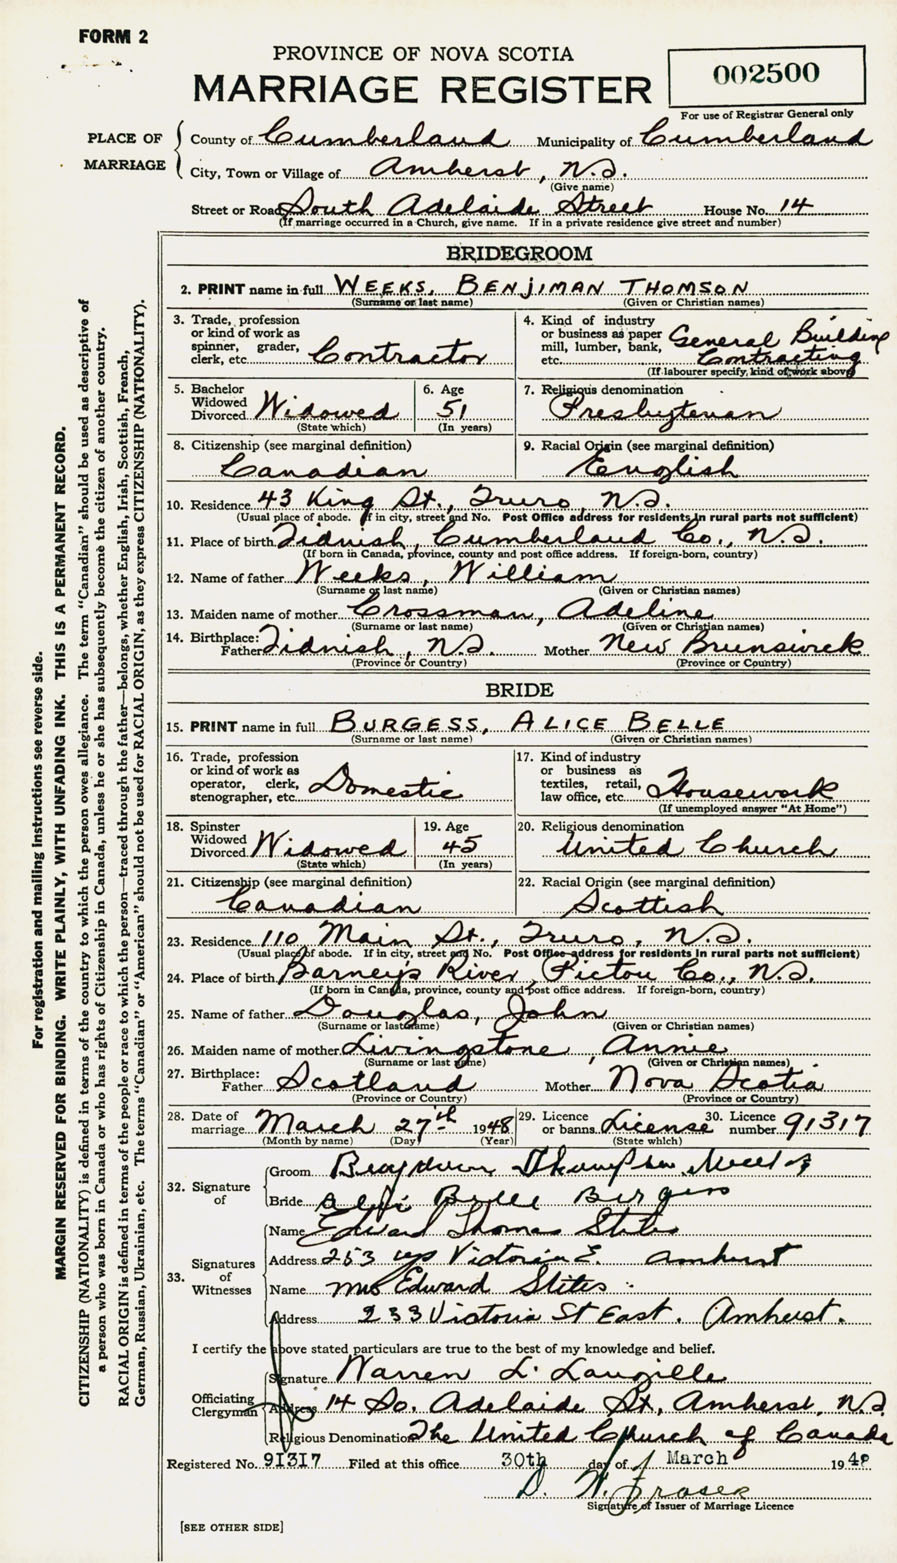 FORM 2
PROVINCE OF NOVA SCOTIA
MARRIAGE REGISTER
002500
For use of Registrar General only
PLACE OF MARRIAGE
County of Cumberland Municipality of Cumberland
City, Town or Village of Amherst, N.S.
(Give name)
Street or Road South Adelaide Street House No. 14
(If marriage occurred in a Church, give name. If in a private residence give street and number)
BRIDEGROOM
2. PRINT name in full WEEKS, BENJIMAN THOMSON
(Surname or last name) (Given or Christian names)
3. Trade, profession or kind of work as spinner, grader, clerk, etc. Contractor
4. Kind of industry or business as paper mill, lumber, bank, etc. General Building Contracting
(If labourer specify, kind of work above)
5. Bachelor Widowed Divorced Widowed
(State which)
6. Age 51
(In years)
7. Religious denomination
Presbyterian
8. Citizenship (see marginal definition)
Canadian
9. Racial Origin (see marginal definition)
English
10. Residence 43 King St., Truro, N.S.
(Usual place of abode. If in city, street and No. Post Office address for residents in rural parts not sufficient)
11. Place of birth Tidnish, Cumberland Co., N.S.
(If born in Canada, province, county and post office address. If foreign-born, country)
12. Name of father Weeks, William
(Surname or last name) (Given or Christian names)
13. Maiden name of mother Crossman, Adeline
(Surname or last name) (Given or Christian names)
14. Birthplace: Father Tidnish, N.S. Mother New Brunswick
(Province or Country) (Province or Country)
BRIDE
15. PRINT name in full BURGESS, ALICE BELLE
(Surname or last name) (Given or Christian names)
16. Trade, profession or kind of work as operator, clerk, stenographer, etc. Domestic
17. Kind of industry or business as textiles, retail, law office, etc. Housework
(If unemployed answer "At Home")
18. Spinster Widowed Divorced Widowed
(State which)
19. Age 45
(In years)
20. Religious denomination
United Church
21. Citizenship (see marginal definition)
Canadian
22. Racial Origin (see marginal definition)
Scottish
23. Residence 110 Main St., Truro, N.S.
(Usual place of abode. If in city, street and No. Post Office address for residents in rural parts not sufficient)
24. Place of birth Barney's River, Pictou Co., N.S.
(If born in Canada, province, county and post office address. If foreign-born, country)
25. Name of father Douglas, John
(Surname or last name) (Given or Christian names)
26. Maiden name of mother Livingstone, Annie
(Surname or last name) (Given or Christian names)
27. Birthplace: Father Scotland Mother Nova Scotia
(Province or Country) (Province or Country)
28. Date of marriage March 27th 1948
(Month by name) (Day) (Year)
29. Licence or banns License
(State which)
30. Licence number 91317
32. Signature of
Groom
Bride Belle Burgess
33. Signatures of Witnesses
Name Edward Thomas Stiles
Address Victoria E. Amherst
Name Mrs Edward Stiles
Address 233 Victoria St East. Amherst.
I certify the above stated particulars are true to the best of my knowledge and belief.
Officiating Clergyman
Signature Warren L. Langille
Address 14 So. Adelaide St, Amherst, N.S.
Religious Denomination The United Church of Canada
Registered No. 91317 Filed at this office 30th day of March 1948
D. W. Fraser
Signature of Issuer of Marriage Licence
[SEE OTHER SIDE]
For registration and mailing instructions see reverse side.
MARGIN RESERVED FOR BINDING. WRITE PLAINLY, WITH UNFADING INK. THIS IS A PERMANENT RECORD.
CITIZENSHIP (NATIONALITY) is defined in terms of the country to which the person owes allegiance. The term "Canadian" should be used as descriptive of
a person who was born in Canada or who has rights of Citizenship in Canada, unless he or she has subsequently become the citizen of another country.
RACIAL ORIGIN is defined in terms of the people or race to which the person—traced through the father—belongs, whether English, Irish, Scottish, French,
German, Russian, Ukrainian, etc. The terms "Canadian" or "American" should not be used for RACIAL ORIGIN, as they express CITIZENSHIP (NATIONALITY).